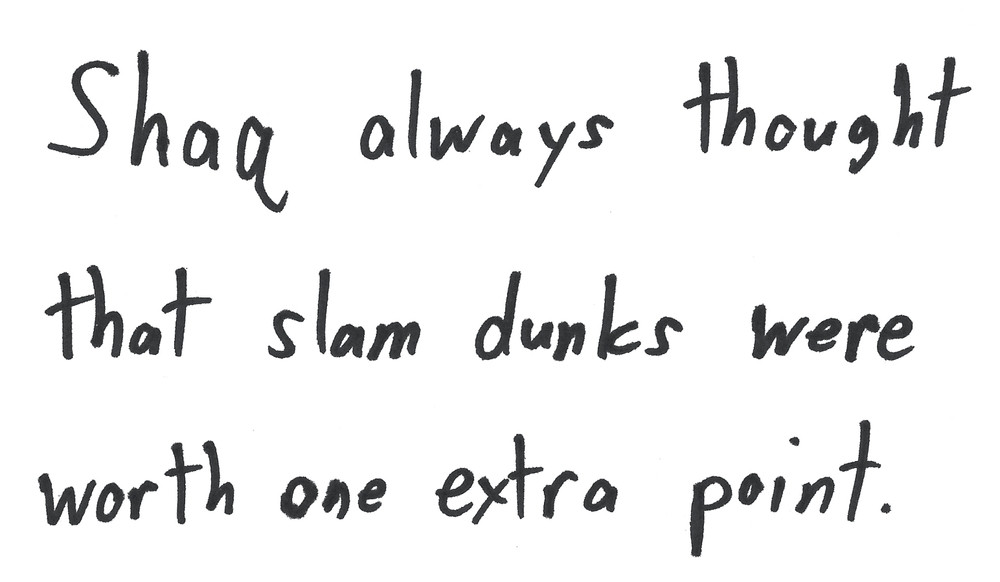 Shaq always thought
that slam dunks were
worth one extra point.